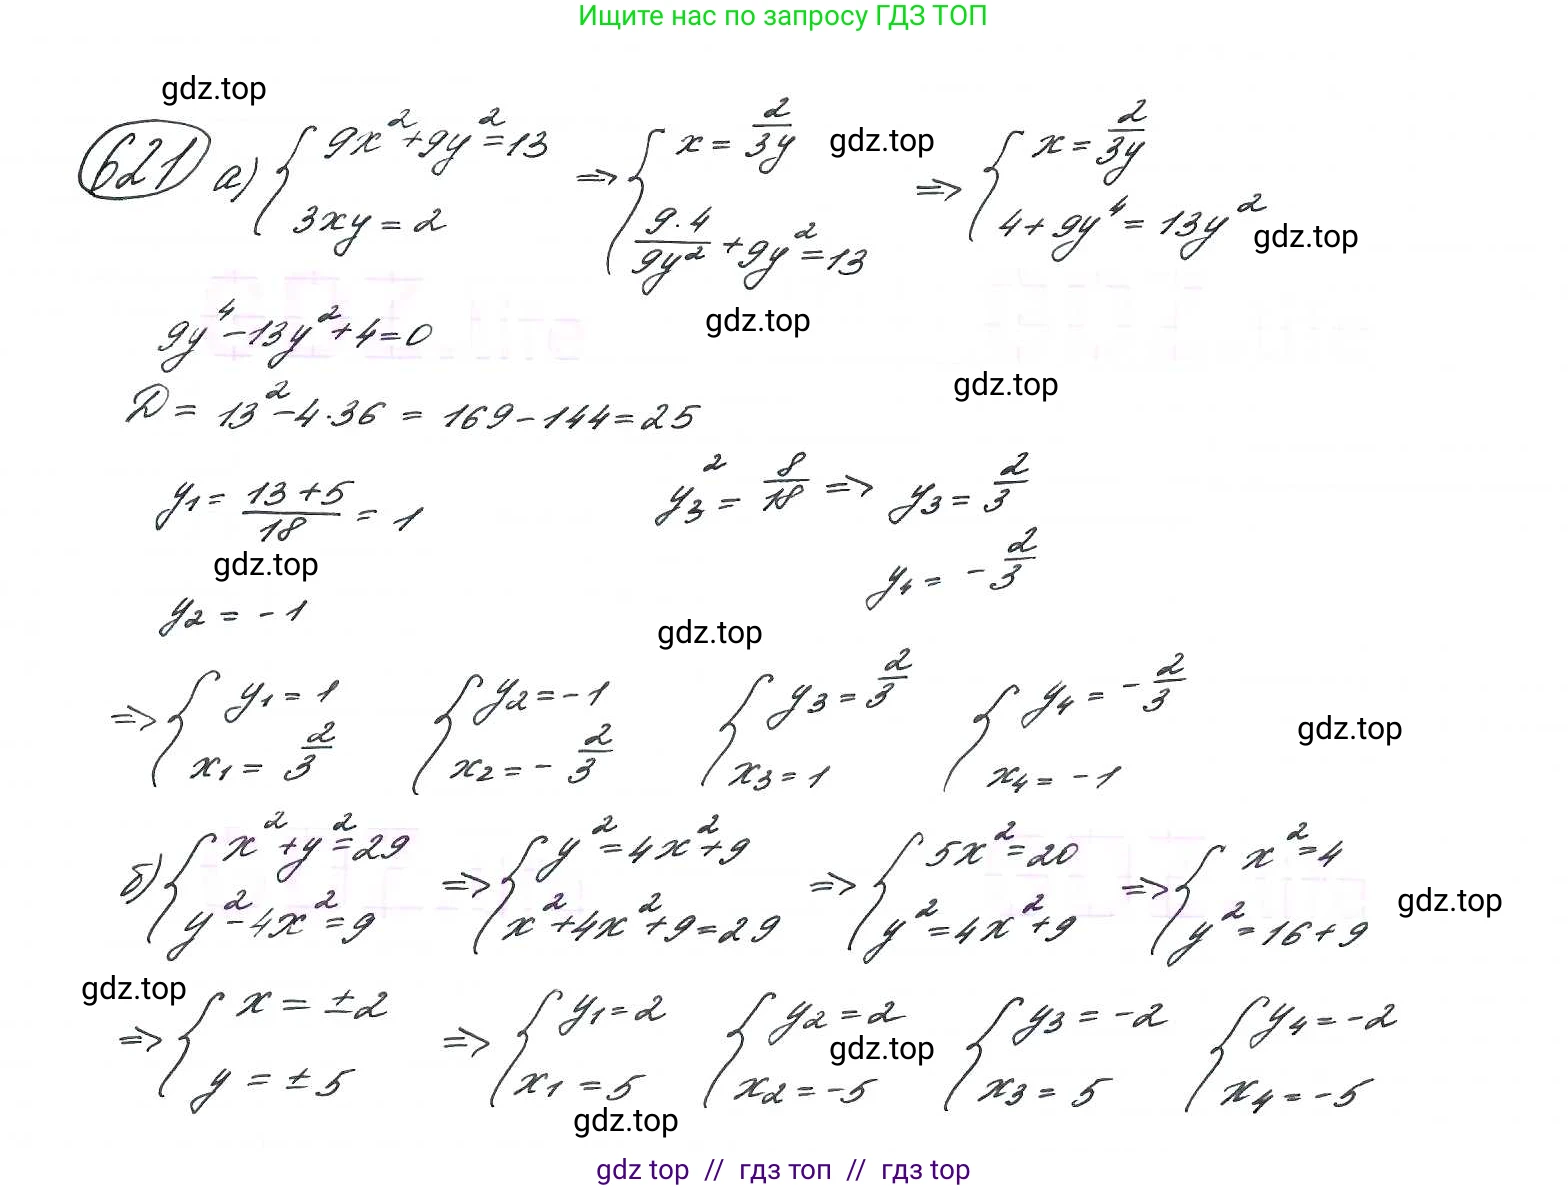 Ищите нас по запросу ГДЗ ТОП
gdz.top
621 а) { 9x² + 9y² = 13 ; 3xy = 2 ⇒ { x = 2/3y ; 9·4/9y² + 9y² = 13 gdz.top ⇒ { x = 2/3y ; 4 + 9y⁴ = 13y² gdz.top
9y⁴ - 13y² + 4 = 0 gdz.top
gdz.top
D = 13² - 4·36 = 169 - 144 = 25
y₁ = 13 + 5/18 = 1 y₃² = 8/18 ⇒ y₃ = 2/3
gdz.top y₄ = - 2/3
y₂ = - 1
gdz.top
⇒ { y₁ = 1 ; x₁ = 2/3 { y₂ = - 1 ; x₂ = - 2/3 { y₃ = 2/3 ; x₃ = 1 { y₄ = - 2/3 ; x₄ = - 1 gdz.top
б) { x² + y² = 29 ; y² - 4x² = 9 ⇒ { y² = 4x² + 9 ; x² + 4x² + 9 = 29 ⇒ { 5x² = 20 ; y² = 4x² + 9 ⇒ { x² = 4 ; y² = 16 + 9 gdz.top
gdz.top
⇒ { x = ±2 ; y = ±5 ⇒ { y₁ = 2 ; x₁ = 5 { y₂ = 2 ; x₂ = -5 gdz.top { y₃ = -2 ; x₃ = 5 { y₄ = -2 ; x₄ = -5
gdz.top
gdz top // гдз топ // gdz top